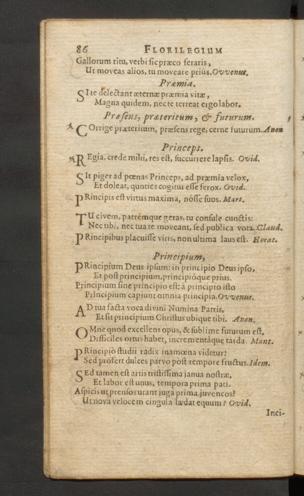 86 FLORILEGIUM
Gallorum ritu, verbi sic præco feraris,
Ut moveas alios, tu moveare priùs. Ovvenus.
Præmia.
SI te delectant æternæ præmia vitæ,
Magna quidem, nec te terreat ergo labor.
Præsens, præteritum, & futurum.
COrrige præteritum, præsens rege, cerne futurum. Anon
Princeps.
REgia, crede mihi, res est, succurrere lapsis. Ovid.
SIt piger ad pœnas Princeps, ad præmia velox,
Et doleat, quoties cogitur esse ferox. Ovid.
PRincipis est virtus maxima, nôsse suos. Mart.
TU civem, patrémque geras, tu consule cunctis:
Nec tibi, nec tua te moveant, sed publica vota. Claud.
PRincipibus placuisse viris, non ultima laus est. Horat.
Principium,
PRincipium Deus ipsum; in principio Deus ipso,
Et post principium, principióque prius.
Principium sine principio est: à principio isto
Principium capiunt omnia principia. Ovvenus.
AD tua facta voca divini Numina Patris,
Et sit principium Christus ubique tibi. Anon.
OMne quod excellens opus, & sublime futurum est,
Difficiles ortus habet, incrementáque tarda. Mant.
PRincipiò studii radix inamœna videtur:
Sed profert dulces parvo post tempore fructus. Idem.
SEd tamen est artis tristissima janua nostræ,
Et labor est unus, tempora prima pati.
Aspicis ut prensos urant juga prima juvencos?
Ut nova velocem cingula lædat equum? Ovid.
Inci-